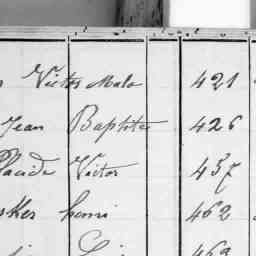 Victor Malo 421
Jean Baptiste 426
Placide Victor 437
henri 462